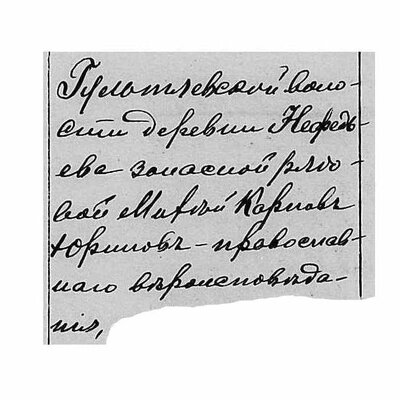 Гультяевской воло-
сти деревни Нефедь-
ева запасной рядо-
вой Матвѣй Карповъ
Юриновъ - православ-
наго вѣроисповѣда-
нія,